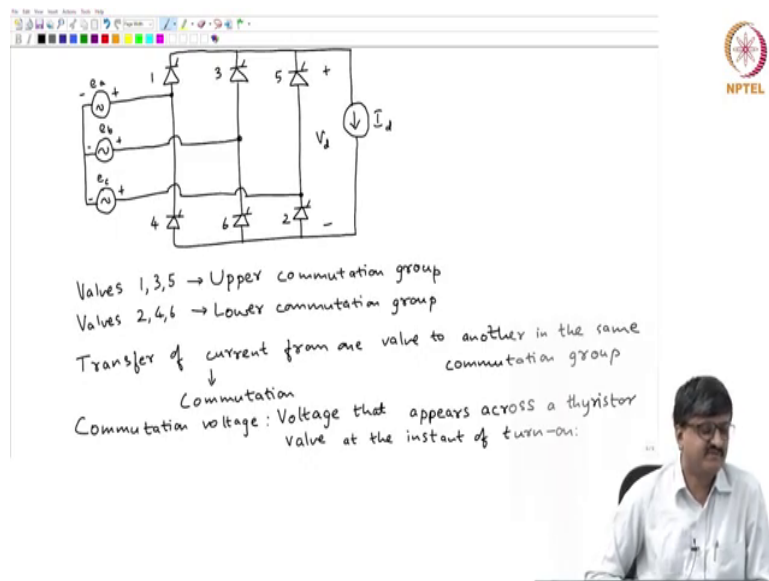 File Edit View Insert Actions Tools Help
Page Width
B I
NPTEL
1 3 5 +
ea
- +
eb
- +
Vd Id
ec
- +
4 6 2 -
Valves 1,3,5 → Upper commutation group
Valves 2,4,6 → Lower commutation group
Transfer of current from one valve to another in the same
commutation group
↓
Commutation
Commutation voltage : Voltage that appears across a thyristor
valve at the instant of turn-on.